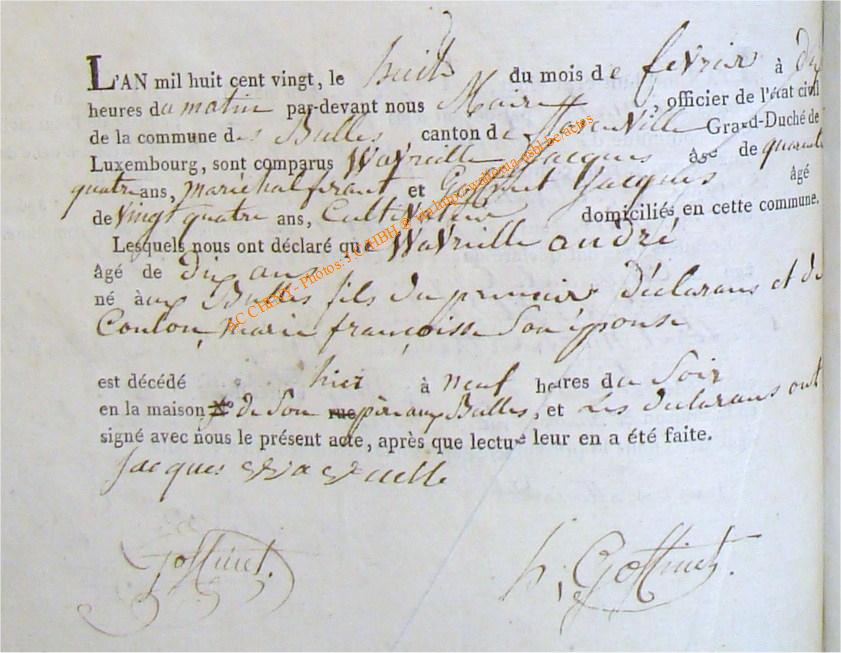 L'AN mil huit cent vingt, le huit du mois de fevrier à dix
heures du matin par-devant nous Maire, officier de l'état civil
de la commune des Bulles canton de Grand-Duché de
Luxembourg, sont comparus Wavreille Jacques âgé de quarente
quatre ans, maréchal ferant et Goffinet Jacques âgé
de vingt quatre ans, Cultivateur domiciliés en cette commune.
Lesquels nous ont déclaré que Wavreille andré
âgé de dix ans
né aux Bulles fils du premier déclarans et de
Coulon, marie françoisse Son épouse
est décédé hier à neuf heures du Soir
en la maison N° de Son rue père aux Bulles, et Les déclarans ont
signé avec nous le présent acte, après que lecture leur en a été faite.
Jacques Wavreille
Goffinet.
h; Goffinet.
AC CHINY - Photos: J. CHBH @ via http://wallonia-asbl.be/actes